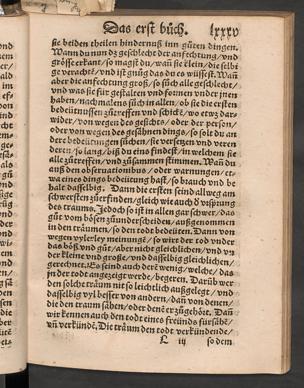 Das erst bůch. lxxxv
sie beiden theilen hindernuß inn gůten dingen.
Wann du nun dz geschlecht der anfechtung / und
grösse erkant / so magst du / wañ sie klein / die selbi
ge verachtē / und ist gnůg das du es wissest. Wañ
aber die anfechtung groß / so sůch alle geschlecht /
und was sie für gestalten und formen under jnen
haben / nachmalens sůch in allen / ob sie die ersten
bedeütnussen zůtreffen und schickt / wo etwz dar
wider / von wegen des gesichts / oder der person /
oder von wegen des gesähnen dings / so solt du an
dere bedeütungen sůchen / sie versetzen und veren
deren / so lang / biß du eins findest / in welchem sie
alle zůtreffen / und zůsammen stimmen. Wann du
auß den observationibus / oder warnungen / et=
wa eines dings bedeütung hast / so brauch und be
halt dasselbig. Dann die ersten seind allweg am
schwersten zůerfinden / gleich wie auch d ursprung
des traums. Jedoch so ist in allen gar schwer / das
gůt vom bösen zůunderscheiden / außgenommen
in den träumen / so den tod bedeüten. Dann von
wegen vylerley meinungē / so wirt der tod under
das böß uñ gůt / aber nicht gleichlichen / und un
der kleine und große / und dasselbig gleichlichen /
gerechnet. Es seind auch derē wenig / welche / das
jn der tod angezeigt werde / begeren. Darüb wer
den solche träum nit so leichtlich außgelegt / und
dasselbig vyl besser von andern / dañ von denen /
die den traum sähen / oder denē er zůgehört. Dañ
wir kennen auch den tod eines freünds fürsähē /
uñ verkündē. Die träum den tod verkündende /
L iij so dem